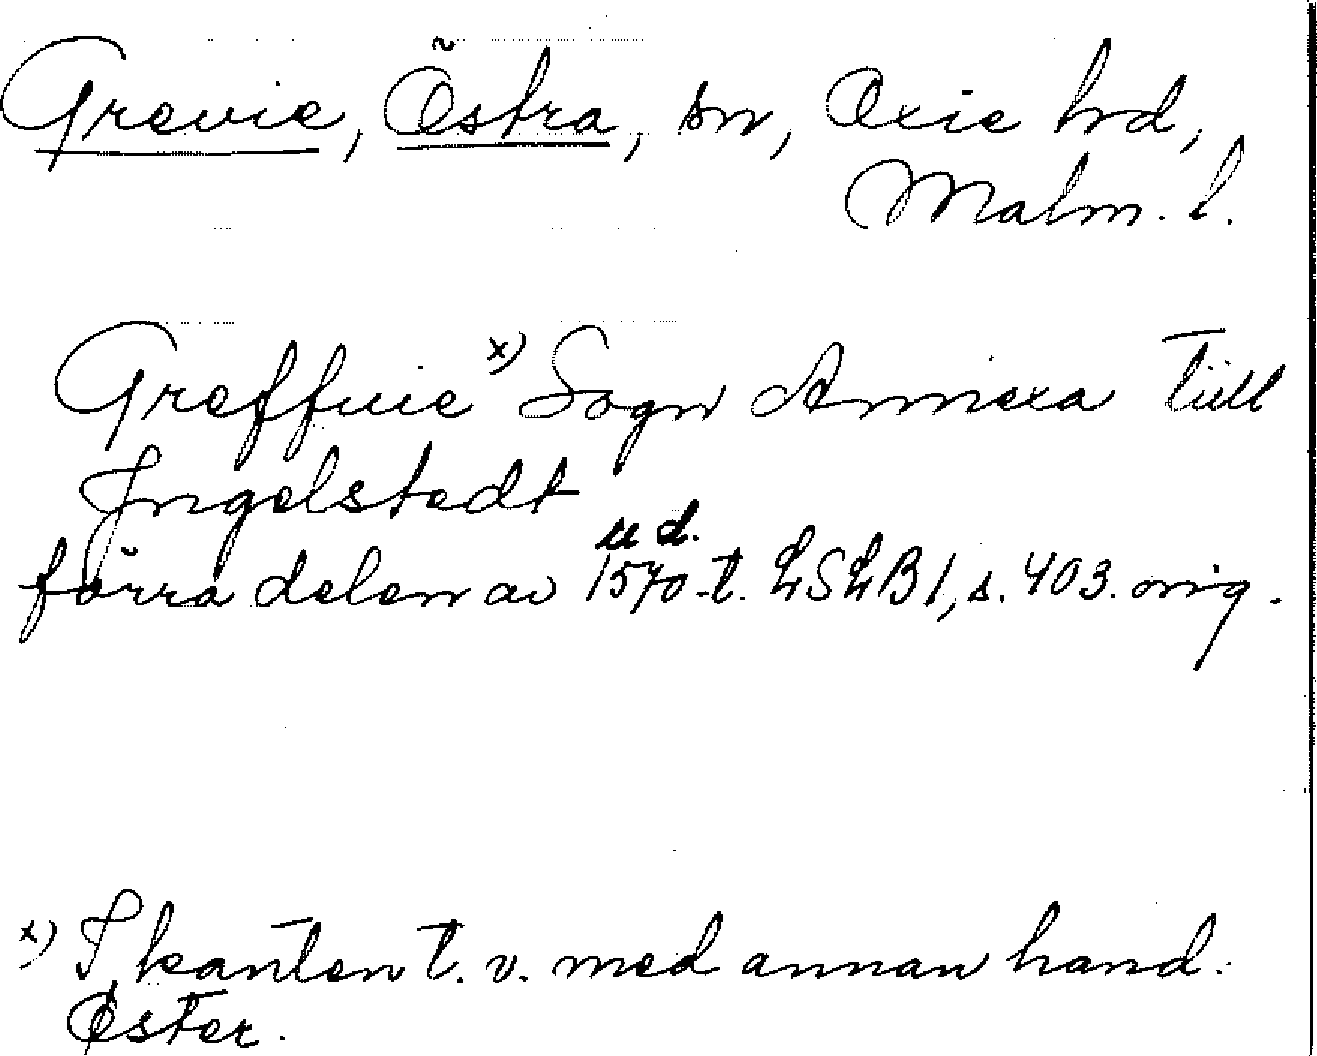 Grevie, Östra, sn, Oxie hd,
Malm. l.
Greffuie x) Sogn Annexa Till
Jngelstedt
u d.
förra delen av 1570-t. LSLB1, s. 403. orig.
x) I kanten t. v. med annan hand.
Øster.